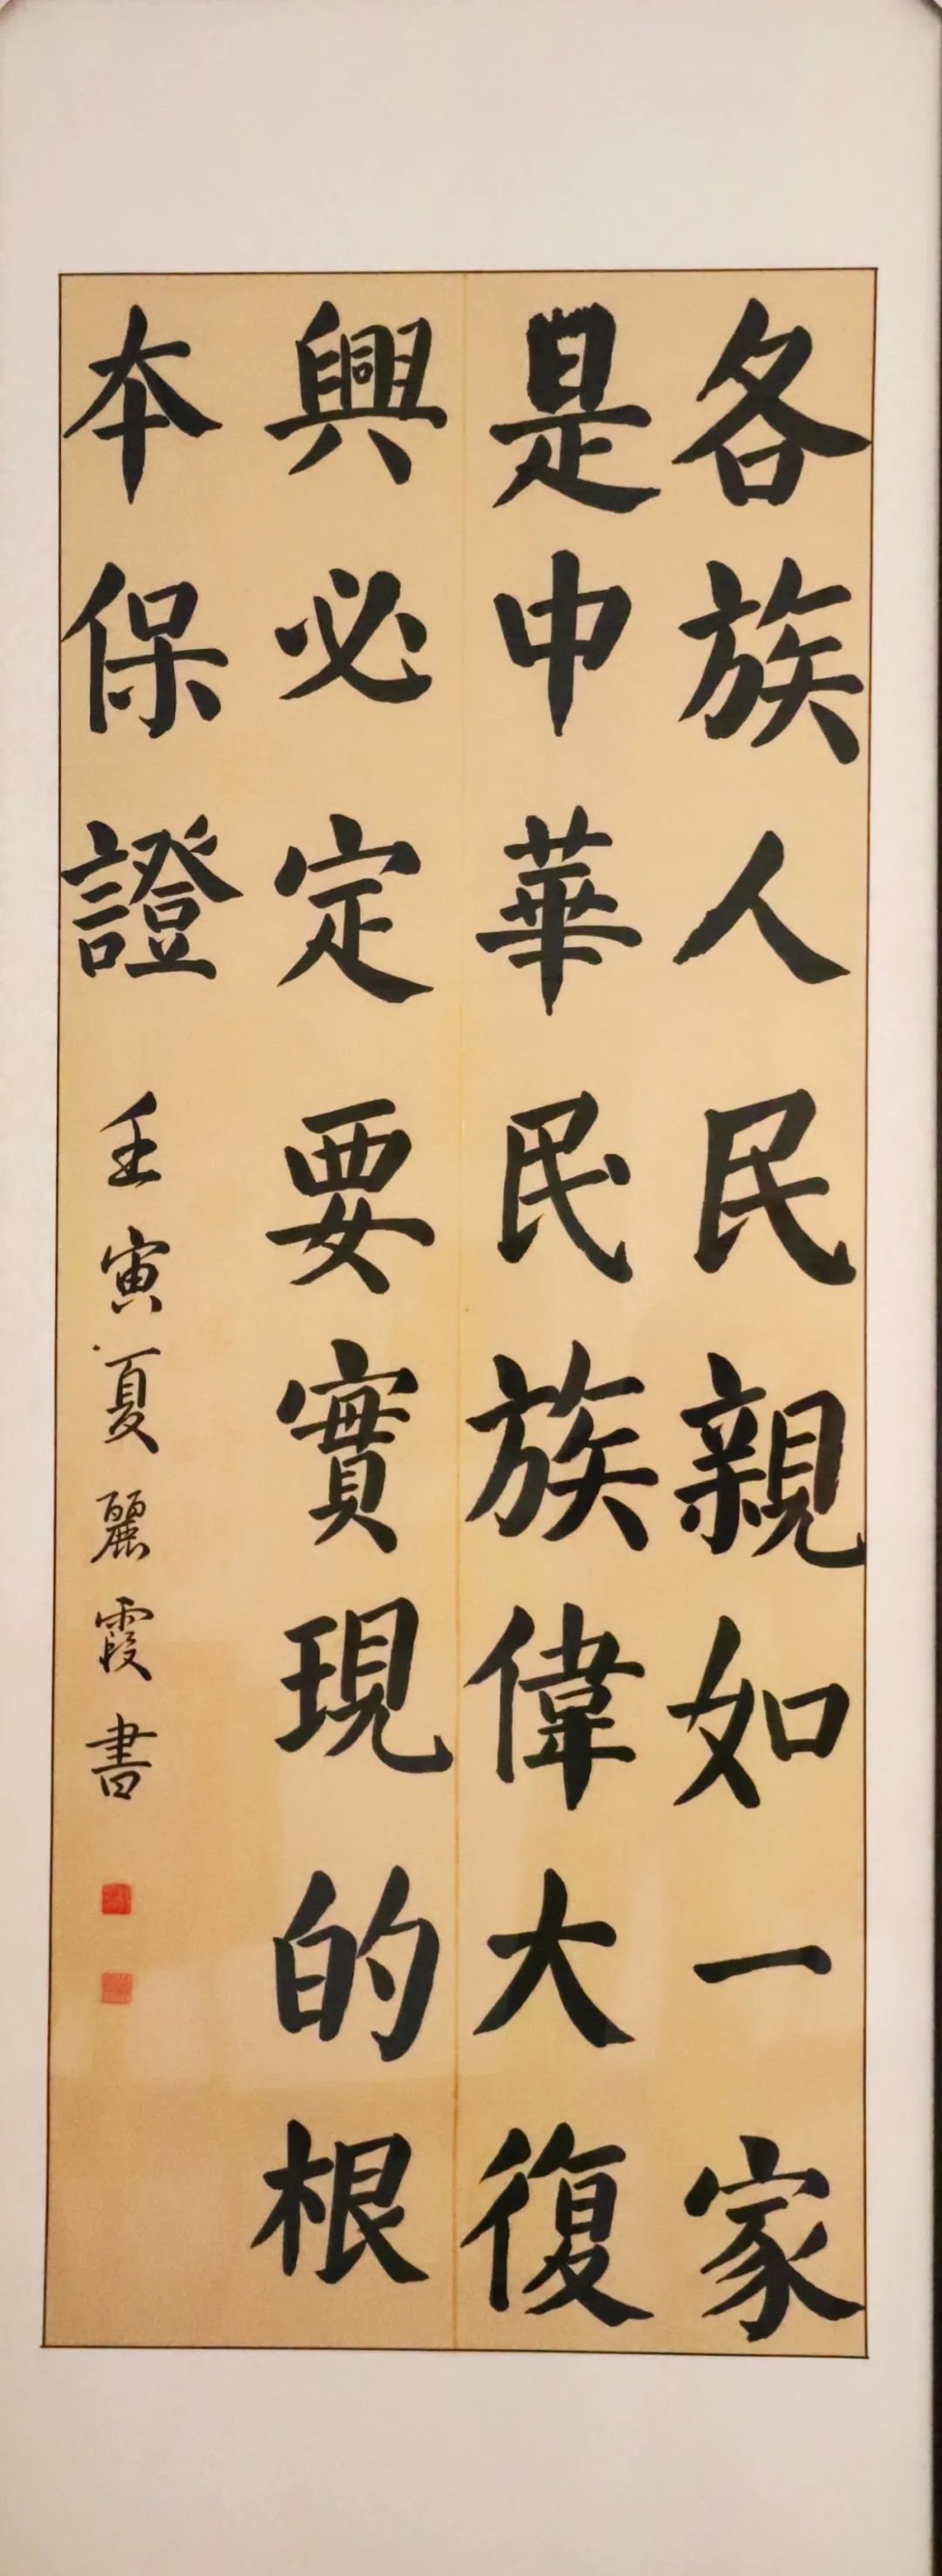 各族人民親如一家
是中華民族偉大復
興必定要實現的根
本保證
壬寅夏麗霞書